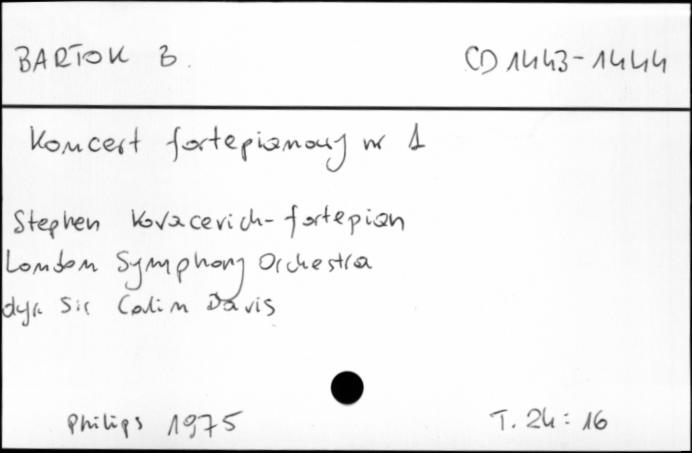 BARTOK B. CD 1443-1444
Koncert fortepianowy nr 1
Stephen Kovacevich - fortepian
London Symphony Orchestra
dyr. Sir Colin Davis
Philips 1975 T. 24:16